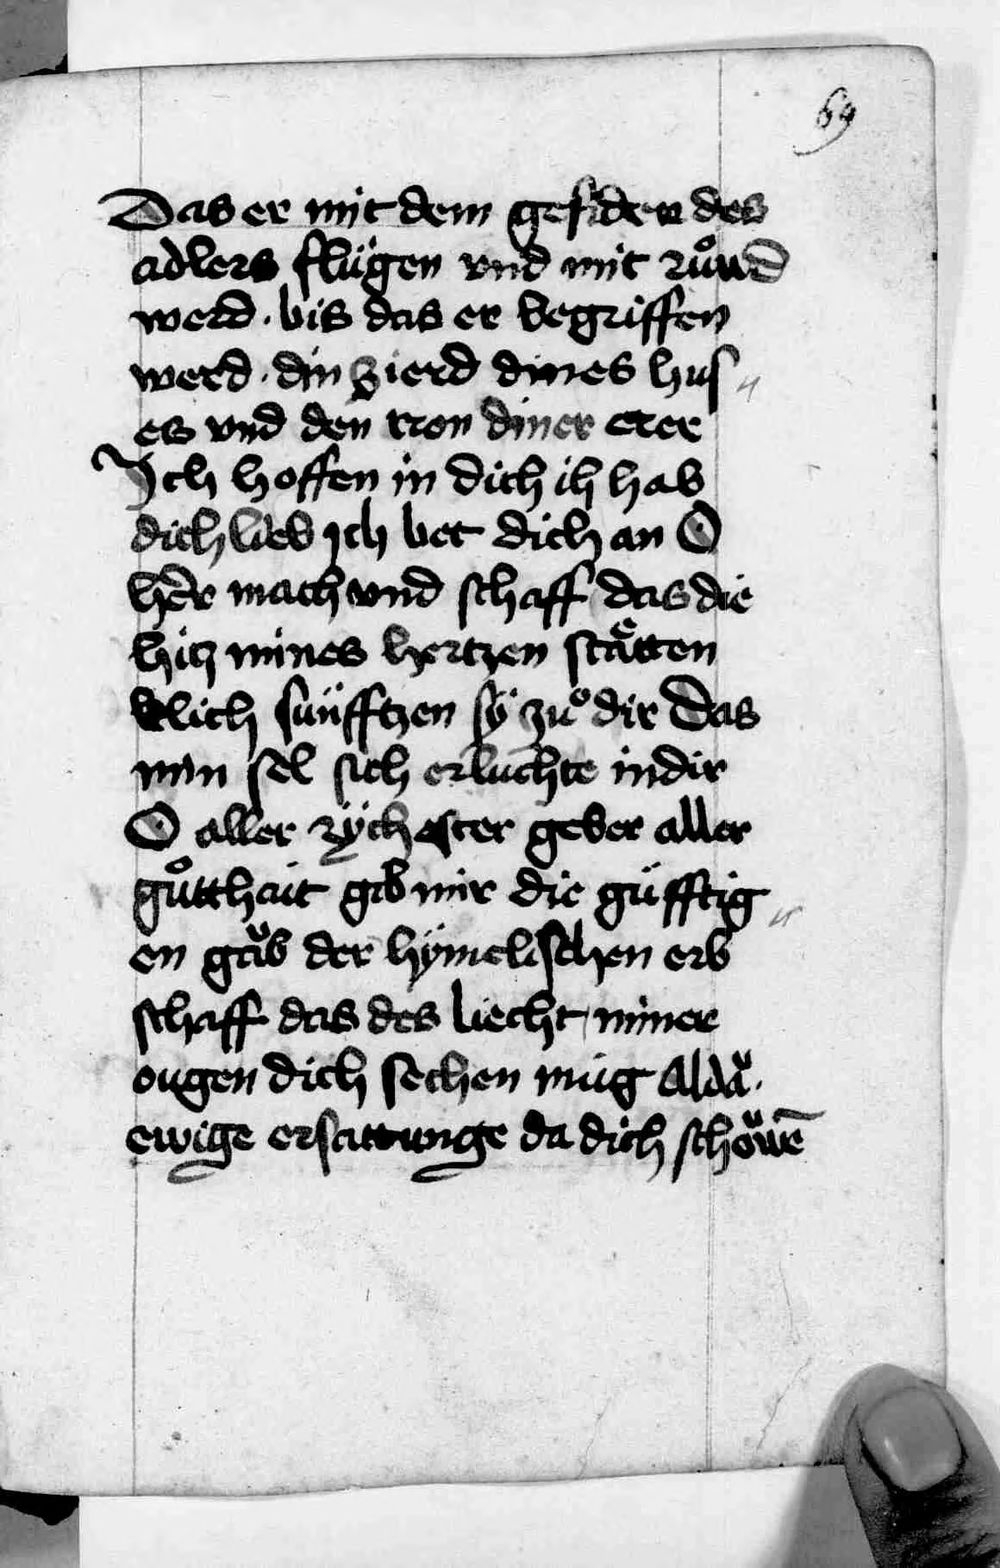 69
Das er mit dem gefider des
adlers flügen vnd mit nuͦwd
werd · bis das er begriffen
werd · din zierd dines hus〃
es vnd den tron diner eter
Ich hoffen in dich ich hab
dich lieb ich bet dich an O
her mach vnd schaff das die
hitz mines hertzen stätten
klich sünfftzen sÿ zuͦ dir Das
min sel sich erluchte in dir
O aller rÿchester geber aller
guͦtthait gib mir die güfftig〃
en gab der hÿmelischen erb
schafft das des liecht miner
ougen dich sechen müg
ewige ersattunge da dich schöwē